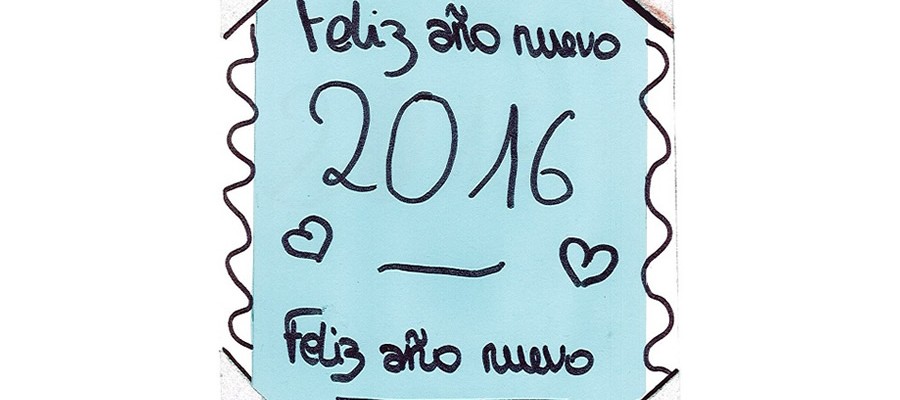 Feliz año nuevo
2016
Feliz año nuevo